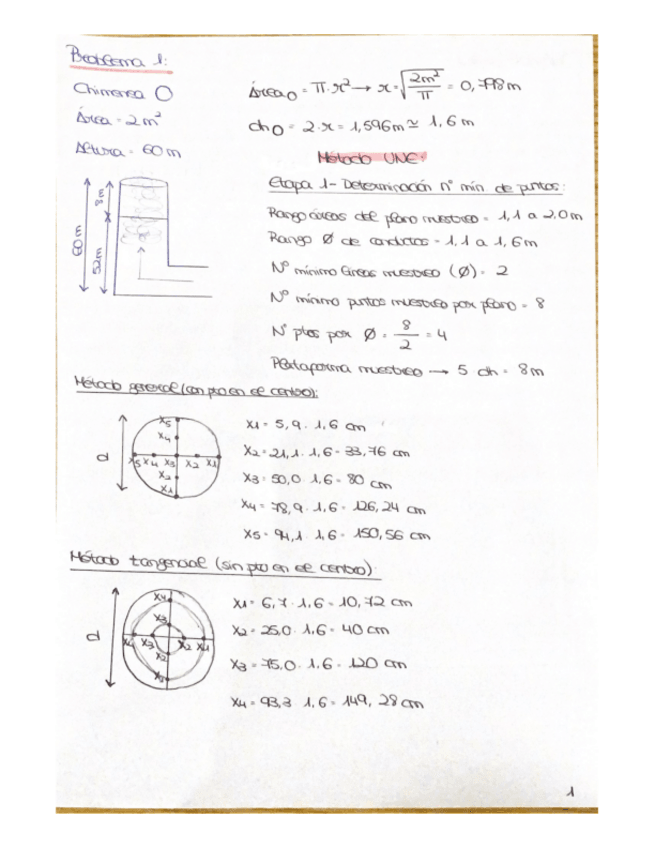 Problema 1:
Chimenea O
Área = 2 m²
Altura = 60 m
Área○ = π · r² → r = √(2m²/π) = 0,798 m
dh○ = 2 · r = 1,596 m ≃ 1,6 m
Método UNE:
Etapa 1 - Determinación nº mín de puntos:
Rango áreas del plano muestreo = 1,1 a 2,0 m
Rango Ø de conductos = 1,1 a 1,6 m
Nº mínimo líneas muestreo (Ø) = 2
Nº mínimo puntos muestreo por plano = 8
Nº ptos por Ø = 8/2 = 4
Plataforma muestreo → 5 · dh = 8 m
60 m
8 m
52 m
Método general (con pto en el centro):
d
X5
X4
X5 X4 X3 X2 X1
X2
X1
X1 = 5,9 · 1,6 cm
X2 = 21,1 · 1,6 = 33,76 cm
X3 = 50,0 · 1,6 = 80 cm
X4 = 78,9 · 1,6 = 126,24 cm
X5 = 94,1 · 1,6 = 150,56 cm
Método tangencial (sin pto en el centro):
d
X4
X3
X4 X3 X2 X1
X2
X1 = 6,7 · 1,6 = 10,72 cm
X2 = 25,0 · 1,6 = 40 cm
X3 = 75,0 · 1,6 = 120 cm
X4 = 93,3 · 1,6 = 149,28 cm
1